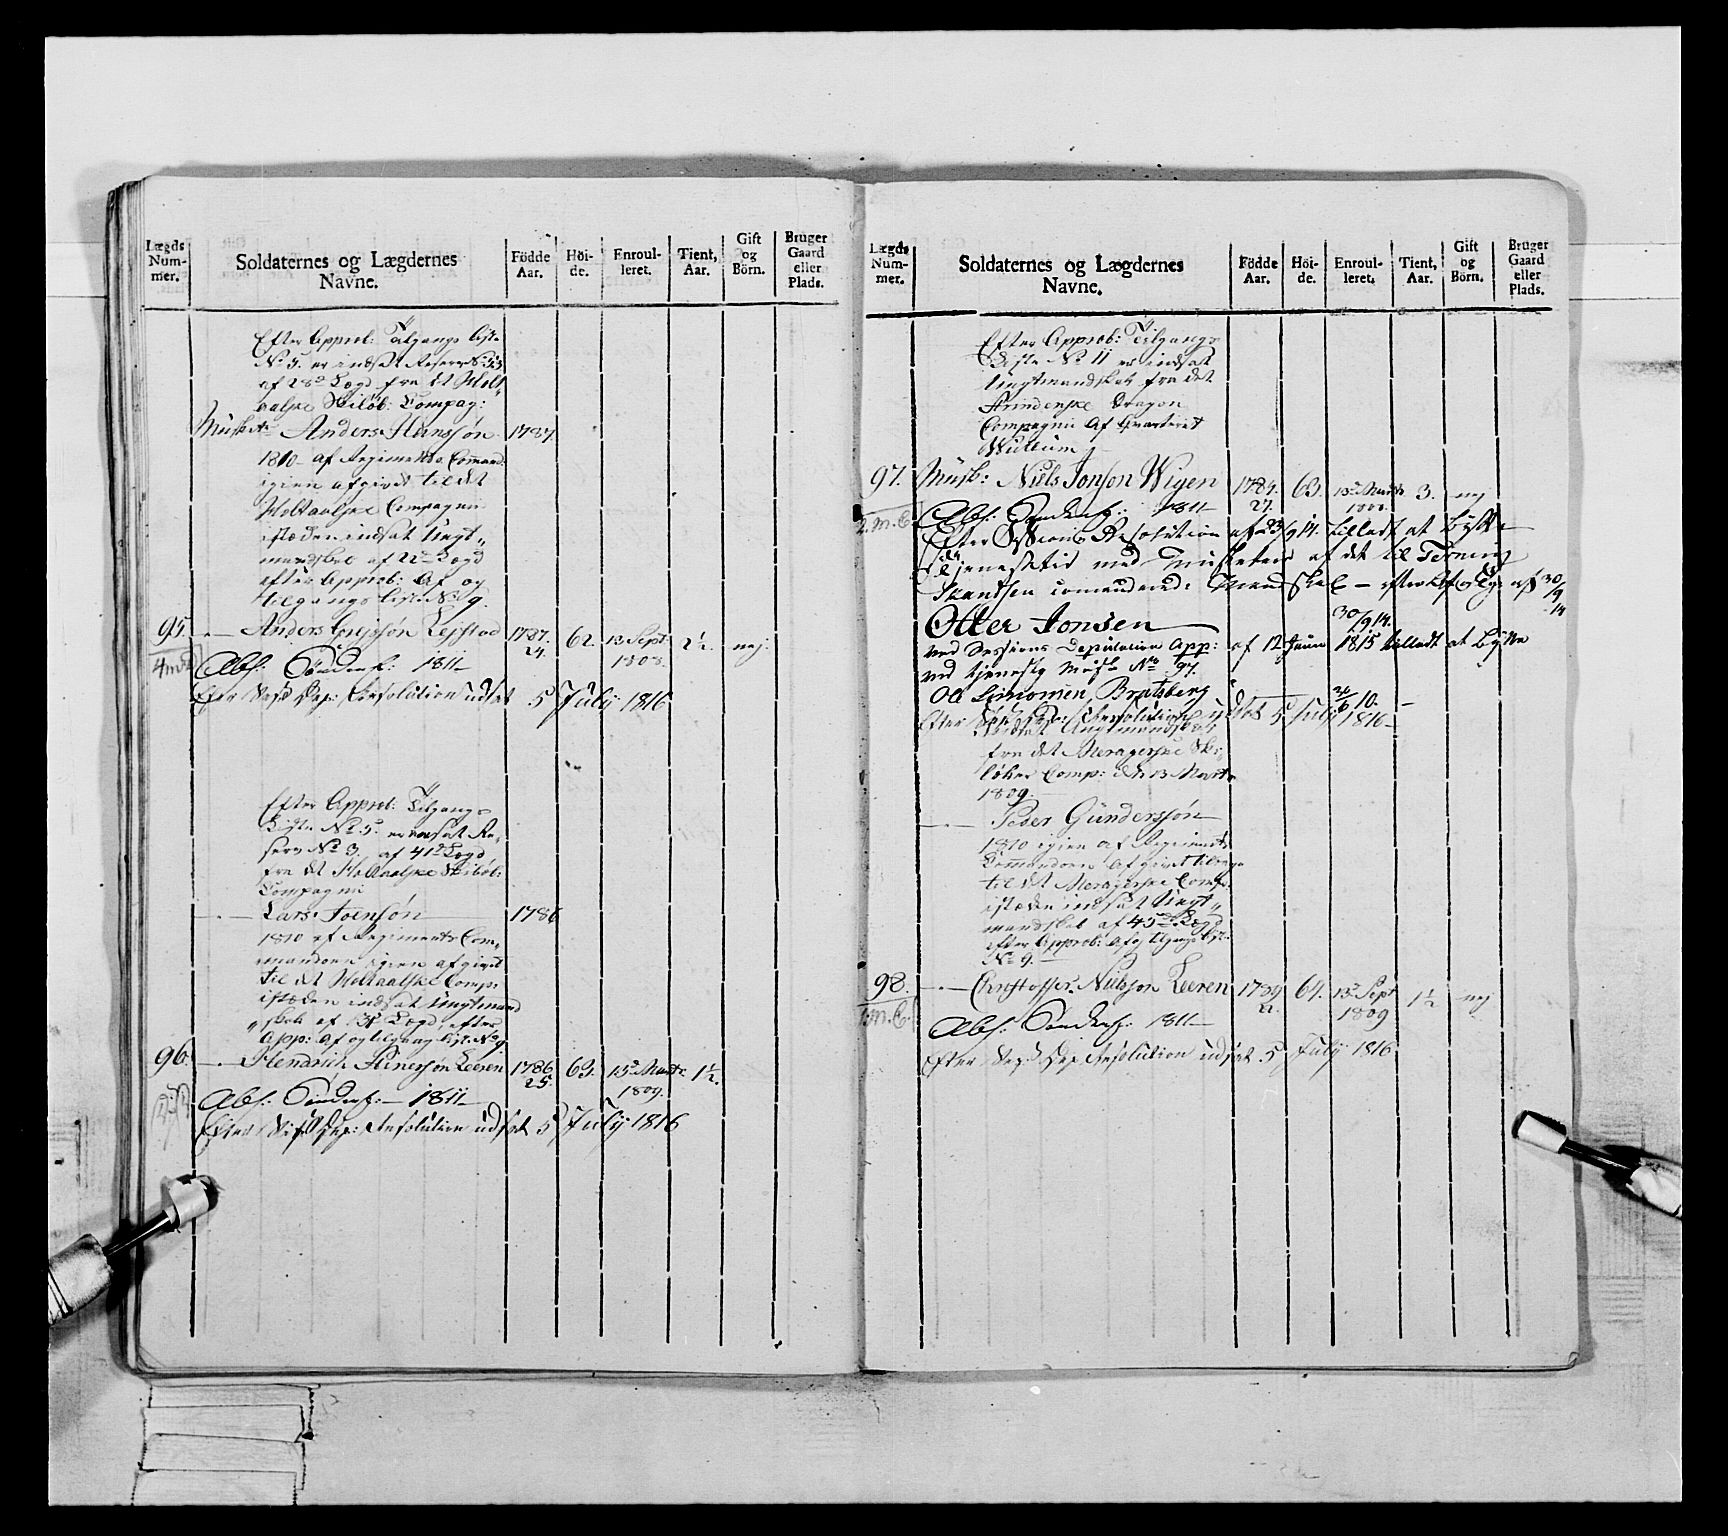 Lægds Num- mer.
Soldaternes og Lægdernes Navne.
Födde Aar.
Höi- de.
Enroul- leret.
Tient, Aar.
Gift og Börn.
Bruger Gaard eller Plads.
Efter Approb: Tilgangs Liste
No 5. er indsat Reserv No 33
af 28d Lægd fra det Holt
aalske Skilöb: Compag:
Musketr Anders Hansøn 1787.
1810 af Regiments Comand:
igien afgivet til det
Holtaalske Compagnie
istæden indsat Ungt„
mandskab af 22d Lægd
efter Approb: Af og
tilgangs liste No 9.
95. —.— Anders Lejstad 1787. 24. 62. 13 Sept 1808. 2½. nej.
4 m
Abs: 1811—
Efter Sess: Dep: Resolution udsat 5 July 1816
Efter Approb: Tilgangs
Liste No 5. er indsat Re„
serv No 3. af 41d Lægd
fra det Holtaalske Skilöb:
Compagnie
—.— Lars Joensøn 1786
1810 af Regiments Com„
mandoen igien afgivet
til det Holtaalske Comp:
istæden indsat Ungtmand
„skab af Lægd, efter
App: Af og tilgang list No 9
96. —.— Hendrich Leeren 1786. 25. 63. 13d Marts 1809. 1½.
Abs: — 1811—
Efter Sess: Dep: Resolution udsat 5 July 1816
Lægds Num- mer.
Soldaternes og Lægdernes Navne.
Födde Aar.
Höi- de.
Enroul- leret.
Tient, Aar.
Gift og Börn.
Bruger Gaard eller Plads.
Efter Approb: Tilgangs
Liste No 11 er indsat
Ungtmandskab fra det
Strindenske Dragon
Compagnie af Quarteret
97. Musk: Niels Jonson Wigen 1784. 27. 63. 13d Marts 3. nej
2. M. C.
Abs: 1811
Efter Sessions Resolution af 23/9 14. tilladt at bytte
tienestetid med Musketeer af det til Terning
Skandsen comanderede Mandskab — efter Af 30/9 14
Otter Jonsen 30/9 14.
ved Sessions Deputation App: af 12 Juni 1815 tilladt at bytte
ved tieneste Musk No 97.
Ole Simonsen Bratsberg 10. —
Efter Resolution udsat 5 July 1816—
Indsat Ungtmandskab
fra det Meragerske Ski„
löber Comp: den 13 Marts
1809.
—.— Peder Gundersøn
1810 igien af Regiments
Commandoen afgivet
til det Meragerske Comp:
istæden indsat Ungt„
mandskab af 45d Lægd
efter Approb: Af og tilgangs list
No 9.—
98. —.— Christoffer Nielsson Leeren 1789 22. 64. 13d Sept 1809 1½ nej
1. M. C.
Abs: 1811—
Efter Sess: Dep: Resolution udsat 5 July 1816